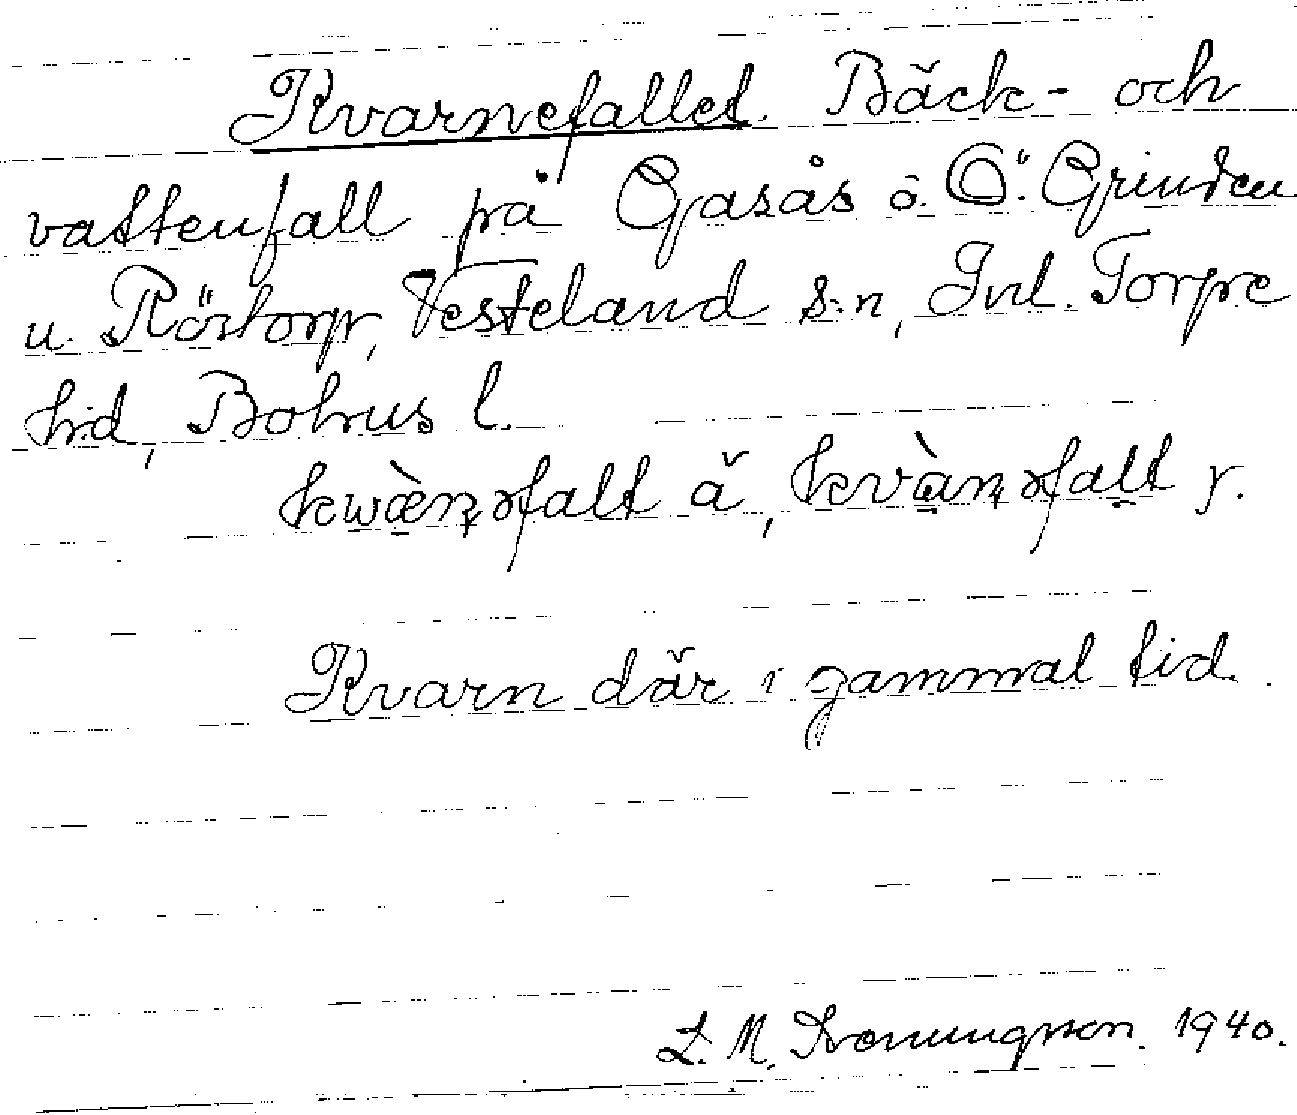 Kvarnefallet. Bäck- och
vattenfall på Gasås ö. Ö. Grinden
u. Röstorp, Vesteland s:n, Inl. Torpe
hd, Bohus l.
ä, y.
Kvarn där i gammal tid.
L. M. 1940.